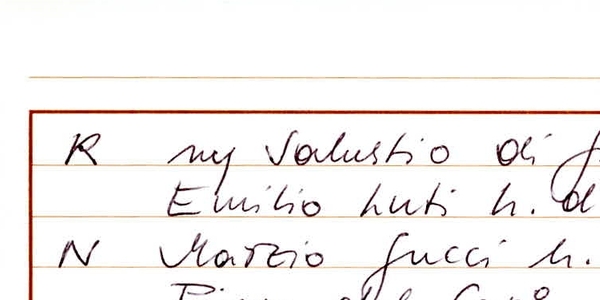 R my Salustio di
Emilio Luti h. d
N Marzio Gucci h.